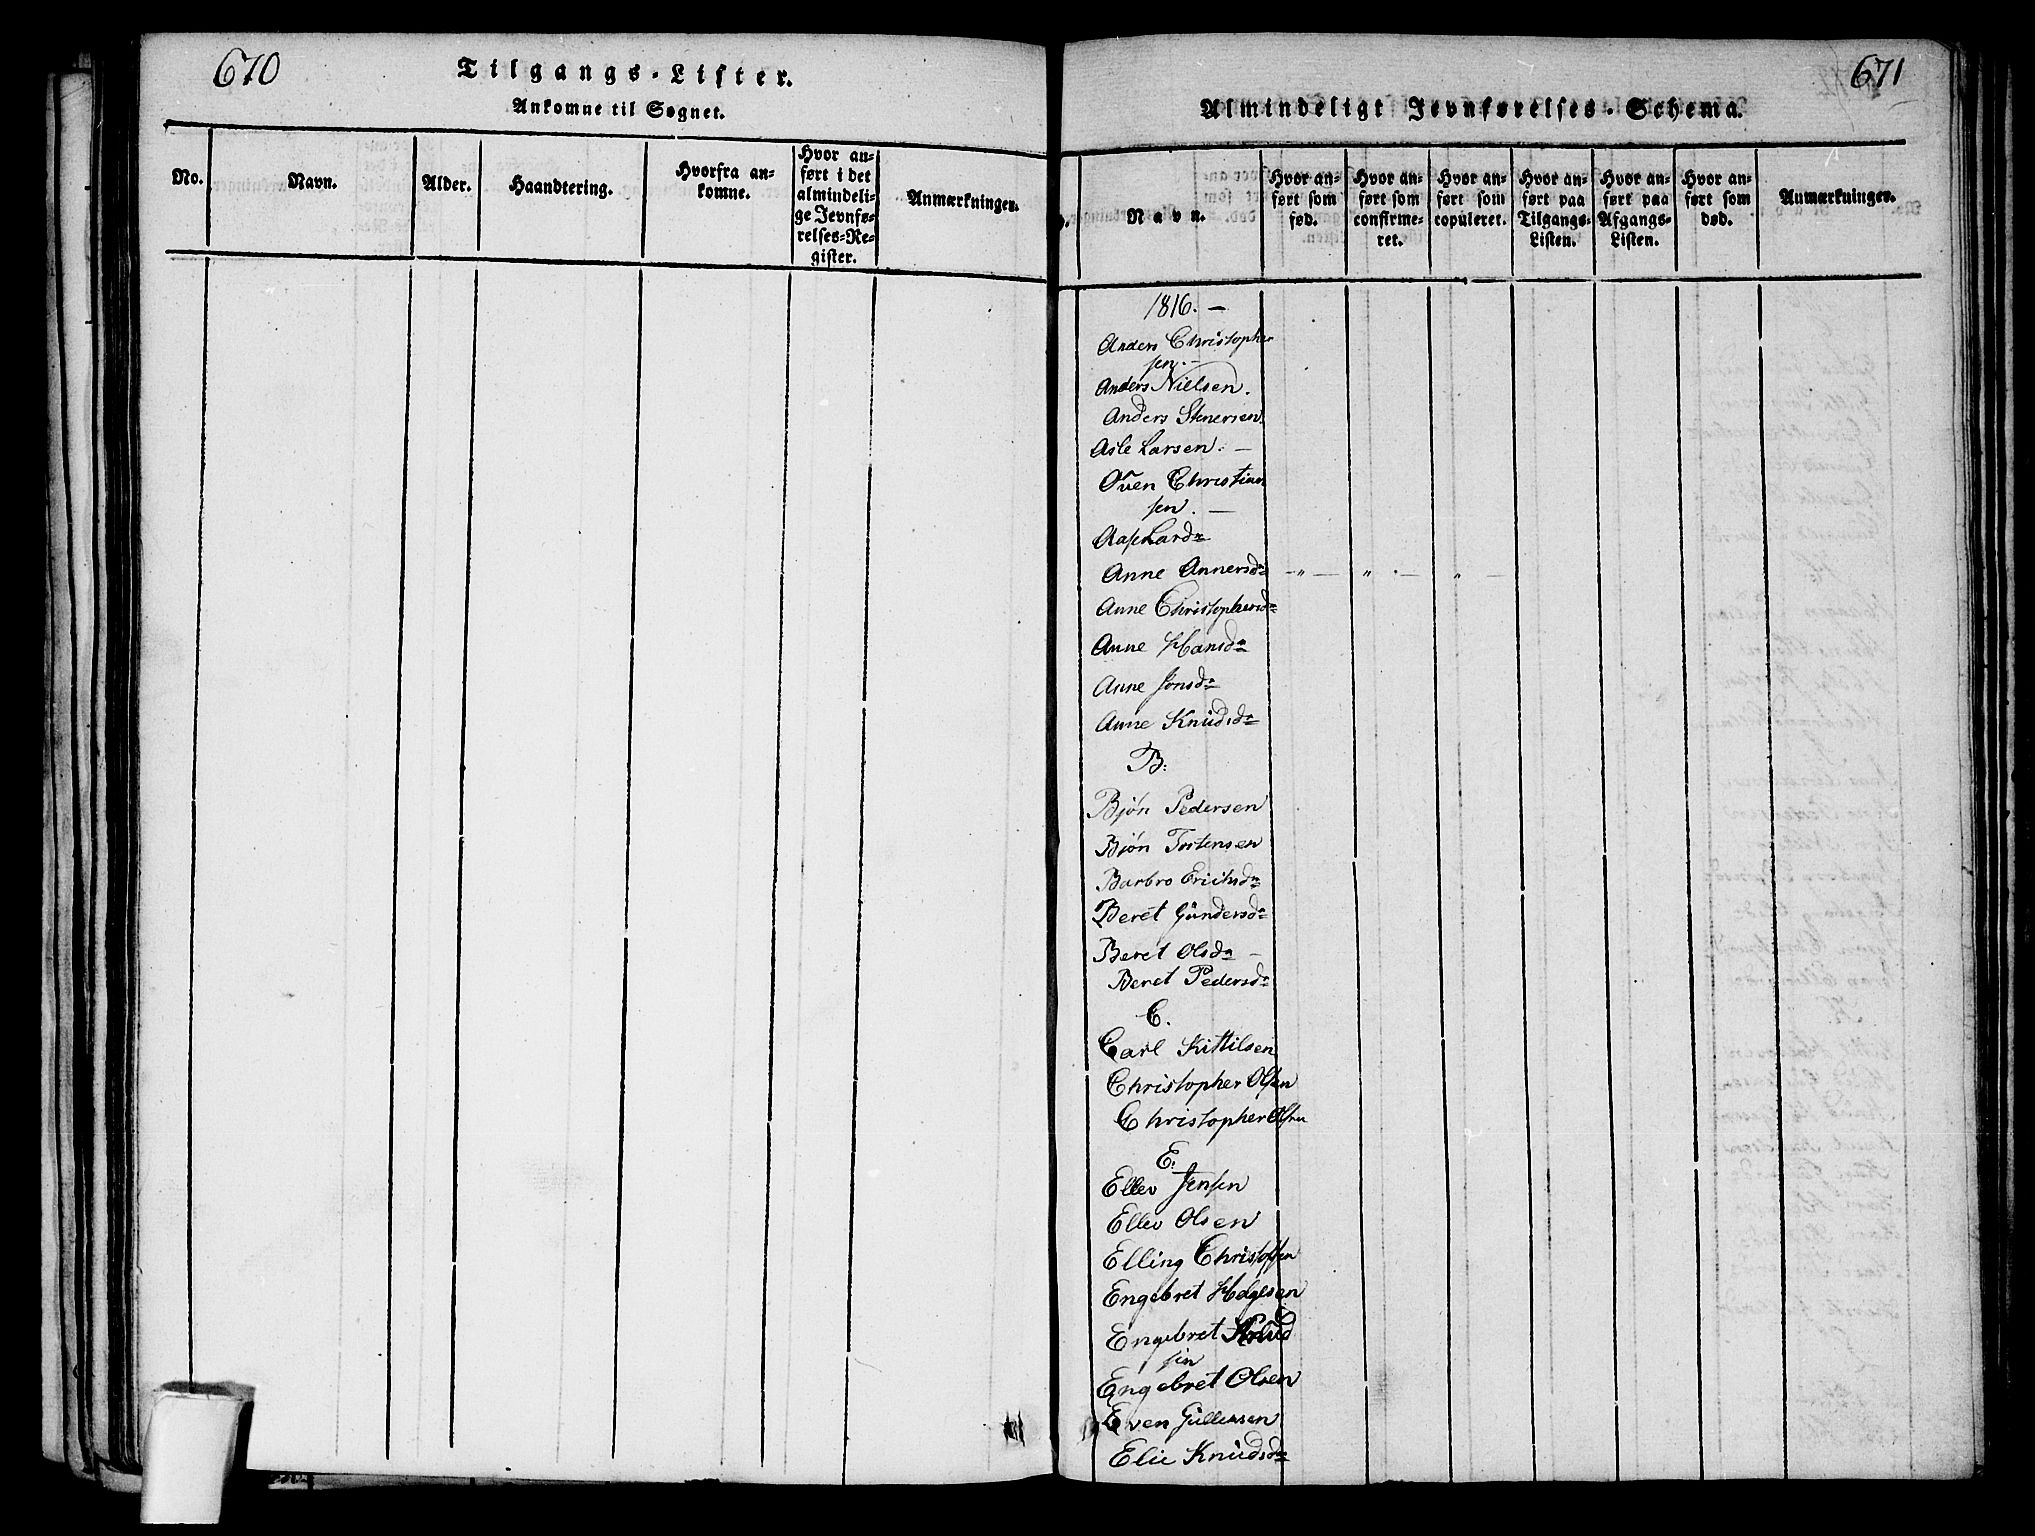 670
Tilgangs-Lister.
Ankomne til Sognet.
No.
Navn.
Alder.
Haandtering.
Hvorfra an-
komne.
Hvor an-
ført i det
almindeli-
ge Jevnfø-
relses-Re-
gister.
Anmærkninger.
671
Almindeligt Jevnførelses-Schema.
Navn.
Hvor an-
ført som
fød.
Hvor an-
ført som
confirme-
ret.
Hvor an-
ført som
copuleret.
Hvor an-
ført paa
Tilgangs-
Listen.
Hvor an-
ført paa
Afgangs-
Listen.
Hvor an-
ført som
død.
Anmærkninger.
1816. -
Anders Christopher
sen. -
Anders Nielsen.
Anders Stenersen
Asle Larsen. -
Oven Christian
sen. -
Larsdr
Anne Annersdr - " - " - " -
Anne Christophersdr
Anne Hansdr
Anne Jonsdr
Anne Knudsdr
B:
Bjøn Pedersen
Bjøn Tostensen
Barbro Erichsdr
Beret Gundersdr
Beret Olsdr -
Beret Pedersdr
C.
Carl Kittilsen
Christopher Olsen
Christopher Olsen
E:
Ellev Jensen
Ellev Olsen
Elling Christoffen
Engebret Helgesen
Engebret Knud
sen
Engebret Olsen
Even Gullensen
Elie Knudsdr